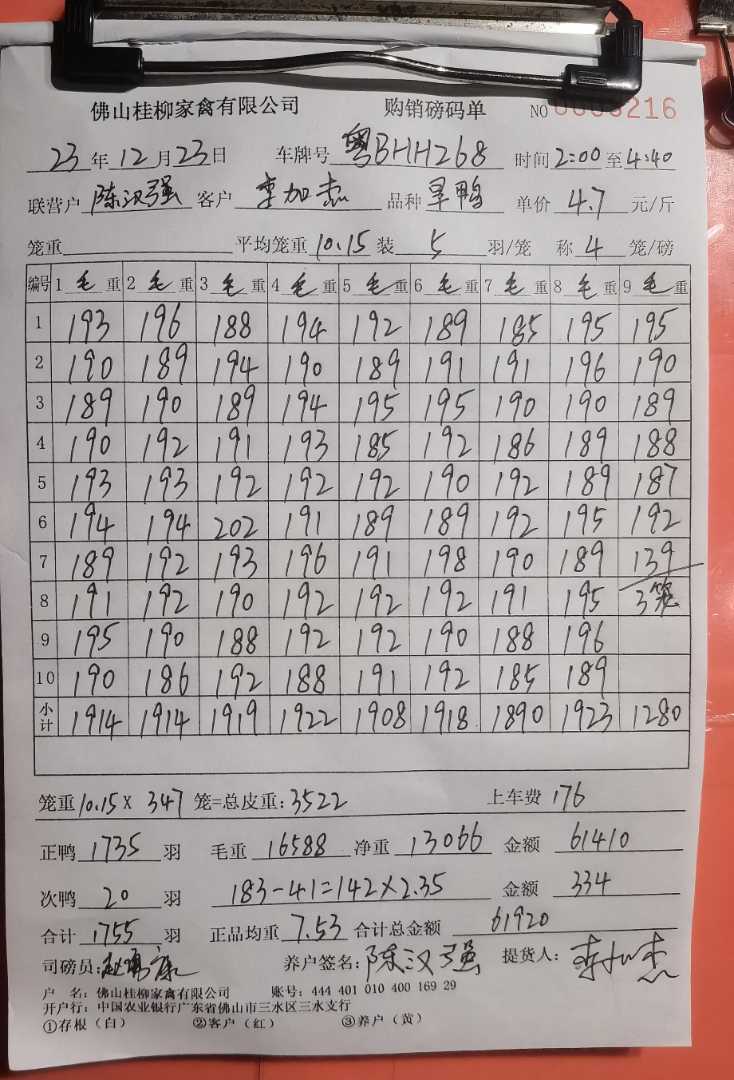 佛山桂柳家禽有限公司 购销磅码单 NO 0003216
23年12月23日 车牌号 粤BHH268 时间 2:00至4:40
联营户 陈汉强 客户 李加杰 品种 旱鸭 单价 4.7 元/斤
笼重 平均笼重 10.15 装 5 羽/笼 称 4 笼/磅
编号 1 毛重 2 毛重 3 毛重 4 毛重 5 毛重 6 毛重 7 毛重 8 毛重 9 毛重
1 193 196 188 194 192 189 185 195 195
2 190 189 194 190 189 191 191 196 190
3 189 190 189 194 195 195 190 190 189
4 190 192 191 193 185 192 186 189 188
5 193 193 192 192 192 190 192 189 187
6 194 194 202 191 189 189 192 195 192
7 189 192 193 196 191 198 190 189 139
8 191 192 190 192 192 192 191 195 3笼
9 195 190 188 192 192 190 188 196
10 190 186 192 188 191 192 185 189
小计 1914 1914 1919 1922 1908 1918 1890 1923 1280
笼重 10.15 × 347 笼=总皮重: 3522 上车费 176
正鸭 1735 羽 毛重 16588 净重 13066 金额 61410
次鸭 20 羽 183-41=142×2.35 金额 334
合计 1755 羽 正品均重 7.53 合计总金额 61920
司磅员: 养户签名: 陈汉强 提货人: 李加杰
户 名: 佛山桂柳家禽有限公司 账号: 444 401 010 400 169 29
开户行: 中国农业银行广东省佛山市三水区三水支行
①存根(白) ②客户(红) ③养户(黄)